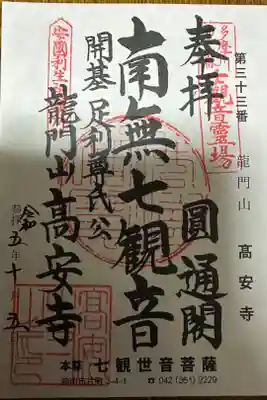 第三十三番
龍門山 高安寺
奉拝
圓通閣
南無七観音
開基 足利尊氏公
龍門山高安寺
安国利生
令和五年十月五
高安寺
本尊 七観世音菩薩
☎ 042 (361) 2229